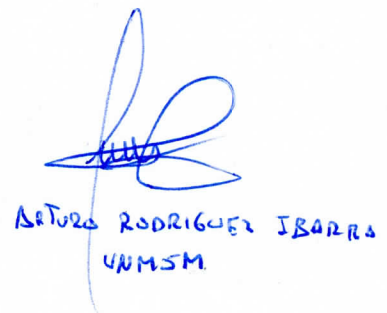 ARTURO RODRIGUEZ IBARRA
UNMSM